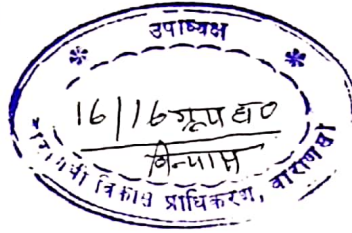 उपाध्यक्ष
16/16 ग्रुप हा०
विन्यास
वाराणसी विकास प्राधिकरण, वाराणसी